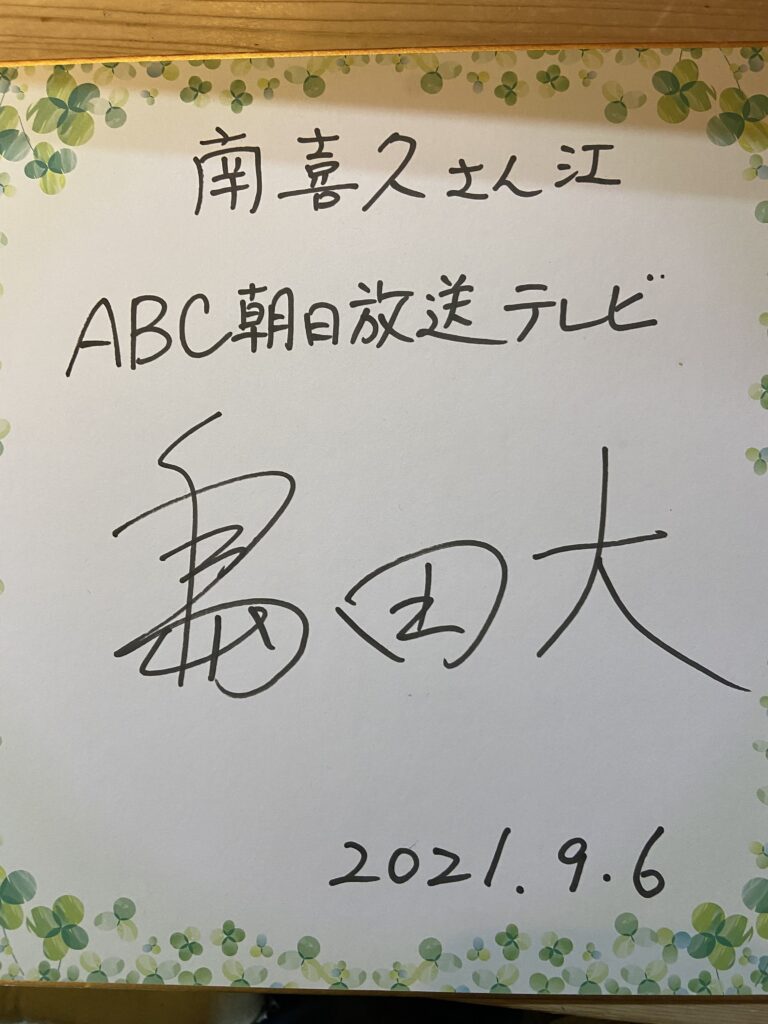 南喜久さん江
ABC朝日放送テレビ
島田大
2021.9.6